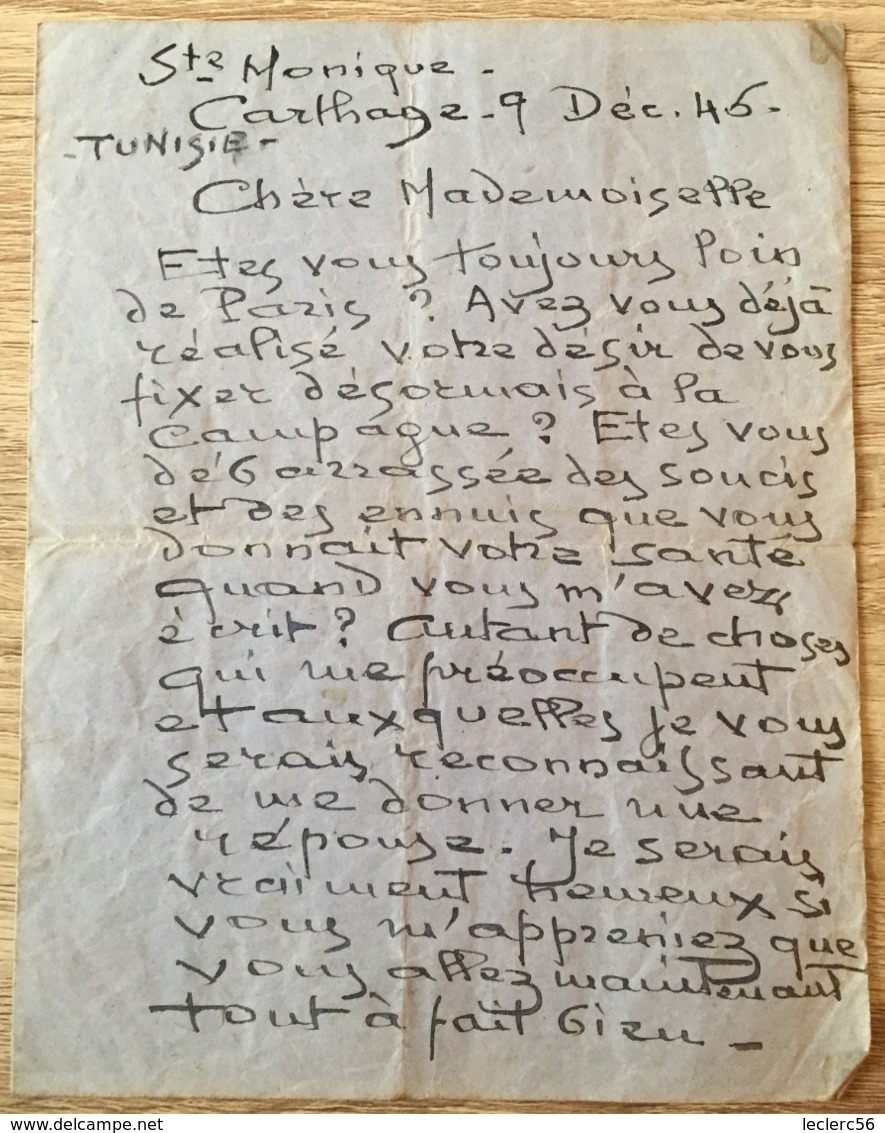 Ste Monique -
Carthage - 9 Déc. 45 -
- TUNISIE -
Chère Mademoiselle
Etes vous toujours loin
de Paris ? Avez vous déjà
réalisé votre désir de vous
fixer désormais à la
campagne ? Etes vous
débarrassée des soucis
et des ennuis que vous
donnait votre santé
quand vous m'avez
écrit ? Autant de choses
qui me préoccupent
et auxquelles je vous
serais reconnaissant
de me donner une
réponse. Je serais
vraiment heureux si
vous m'appreniez que
vous allez maintenant
tout à fait bien -
www.delcampe.net
leclerc56